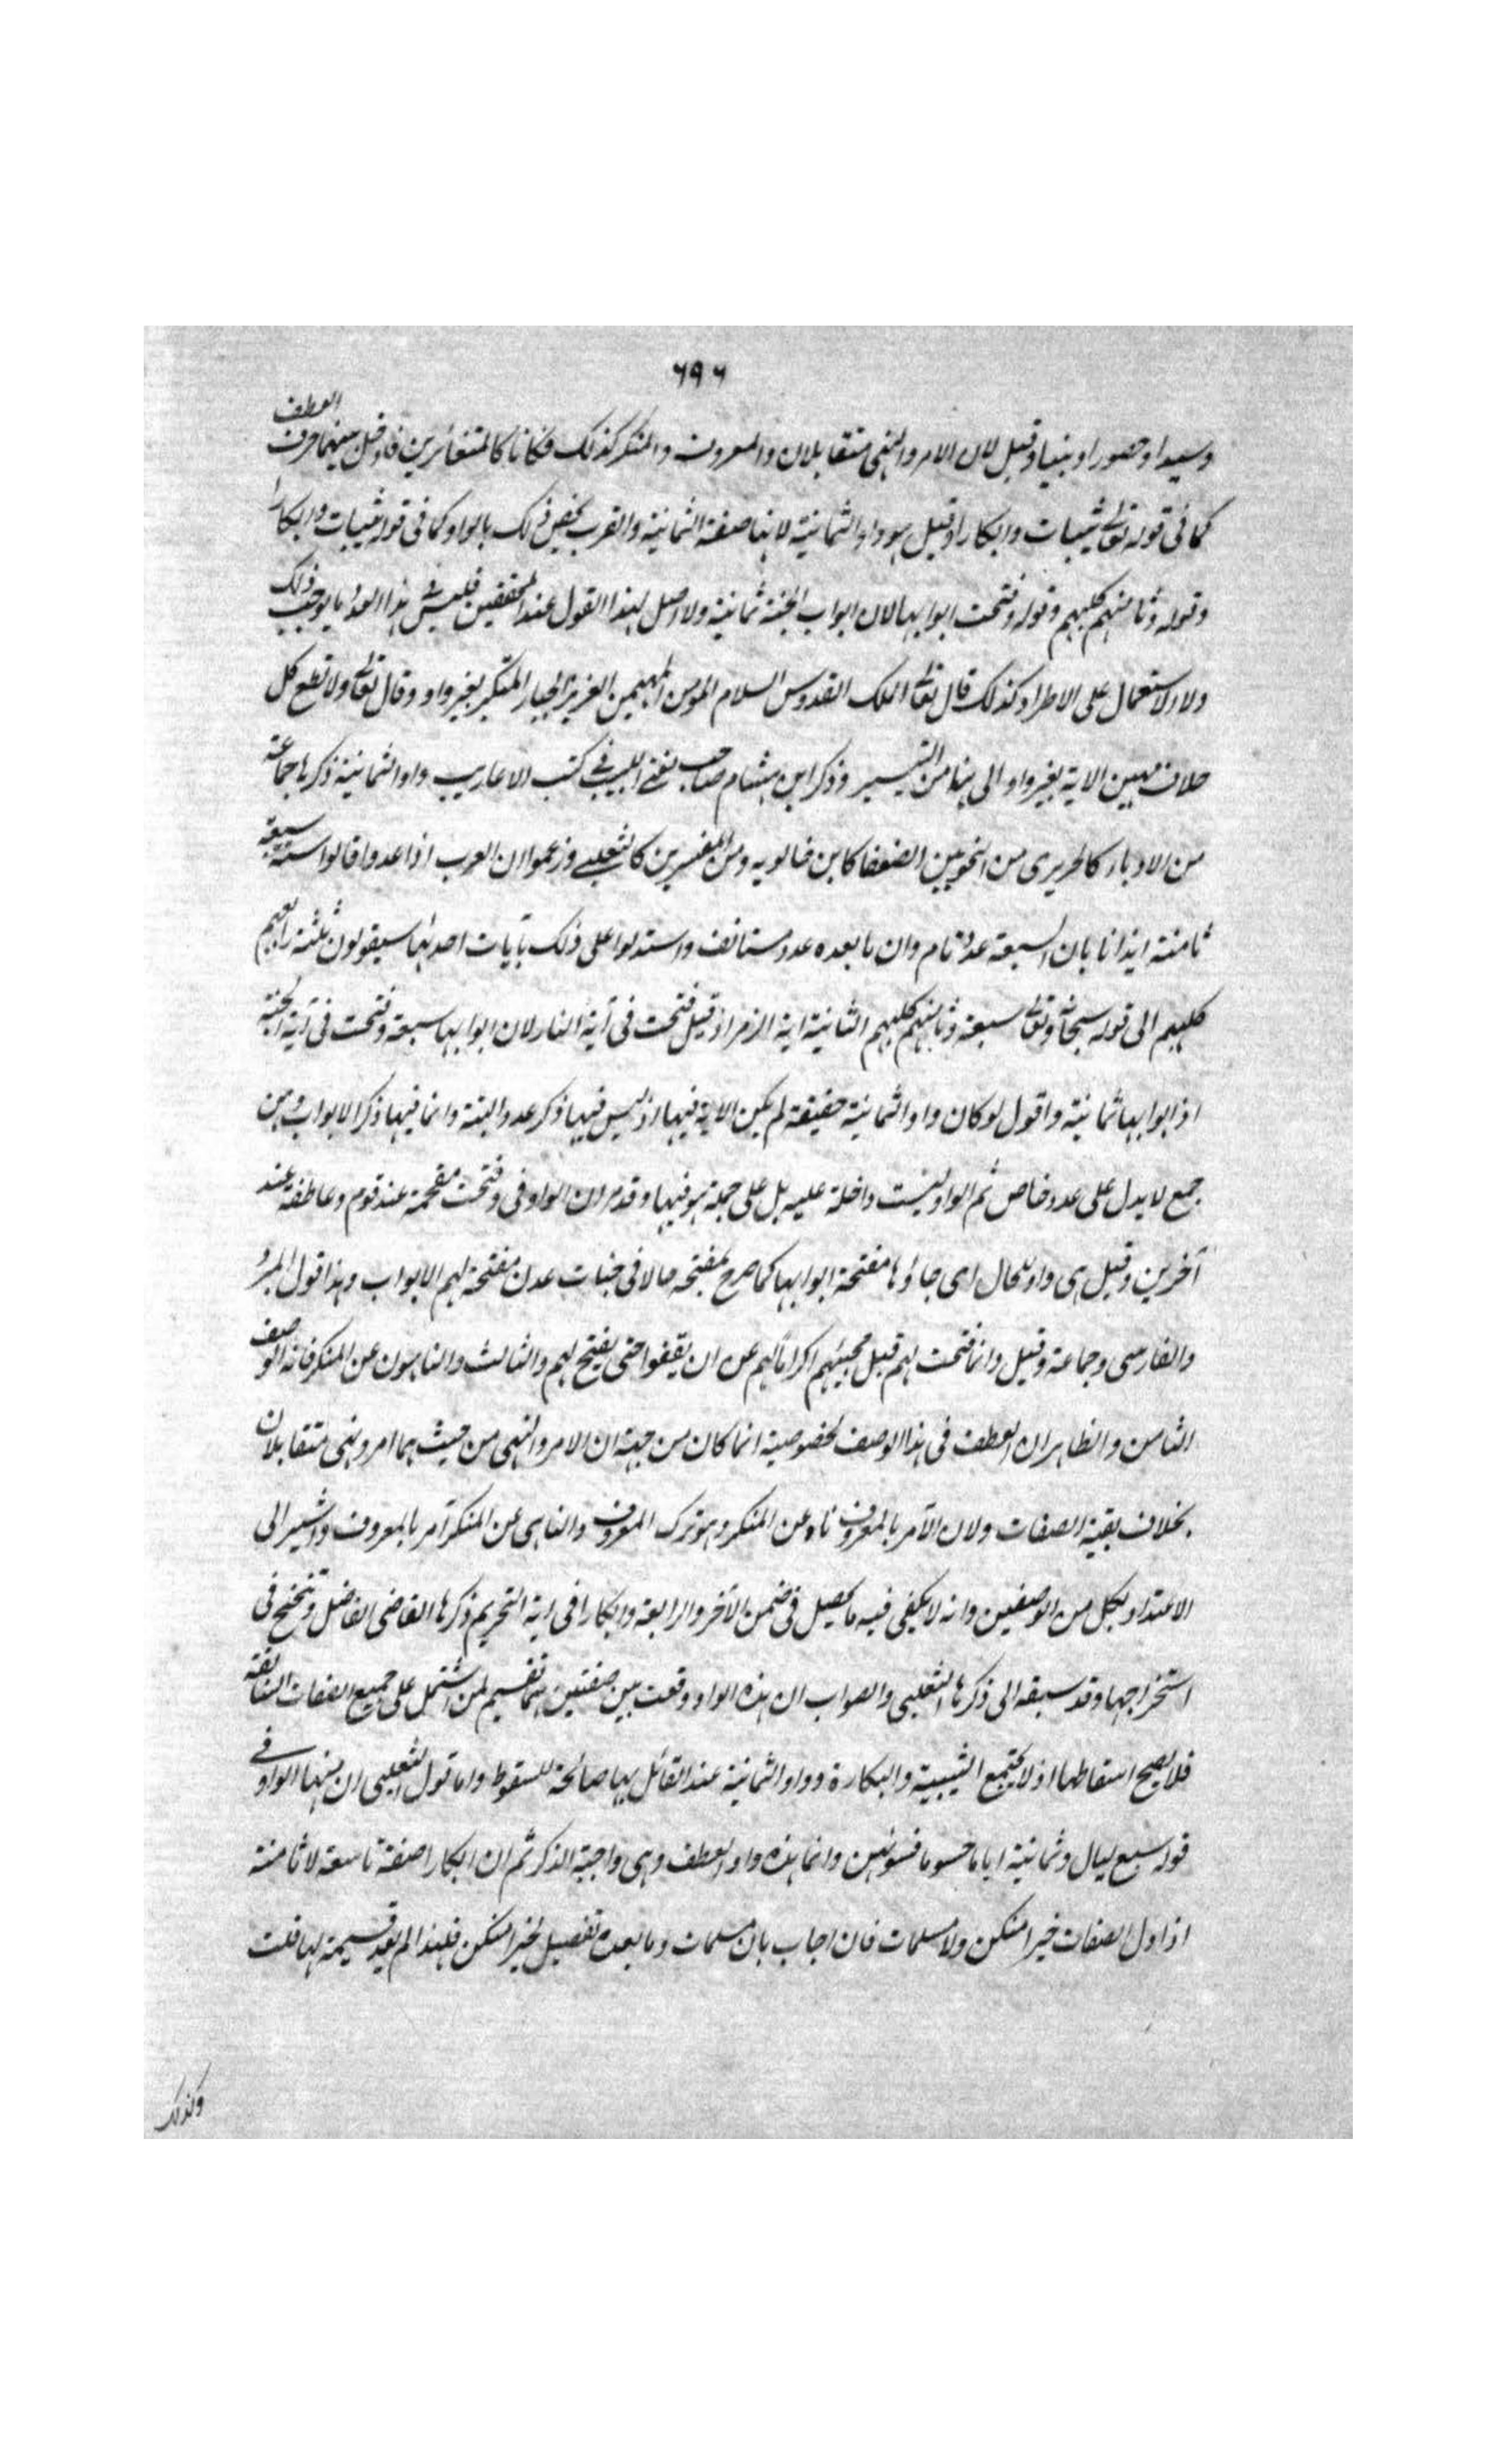 ٦٩٦
وسيدا وحصورا ونبيا وقيل لان الامر والنهى متقابلان والمعروف والمنكر كذلك فكانا كالمتغائرين فادخل بينهما حرف العطف
كما فى قوله تعالى ثيبات وابكارا وقيل هو واو الثمانية لانها صفة الثمانية والعرب يخص ذلك بالواو كما فى قوله ثيبات وابكارا
وقوله وثامنهم كلبهم وقوله وفتحت ابوابها لان ابواب الجنة ثمانية ولا اصل لهذا القول عند المحققين فليس فى هذا العدد ما يوجب ذلك
ولا الاستعمال على الاطراد كذلك قال تعالى الملك القدوس السلام المومن المهيمن العزيز الجبار المتكبر بغير واو وقال تعالى ولا تطع كل
حلاف مهين الاية بغير واو الى هنا من التيسير وذكر ابن هشام صاحب مغنى اللبيب فى كتب الاعاريب واو الثمانية ذكرها جماعة
من الادباء كالحريرى من النحويين الضعفا كابن خالويه ومن المفسرين كالثعلبى وزعموا ان العرب اذا عدوا قالوا ستة سبعة
ثامنة ايذانا بان السبعة عدد تام وان ما بعده عدد مستانف واستدلوا على ذلك بآيات احدلها سيقولون ثلثة رابعهم
كلبهم الى قوله سبحانه وتعالى سبعة وثامنهم كلبهم الثانية اية الزمر اذ قيل فتحت فى آية النار لان ابوابها سبعة وفتحت فى آية الجنة
اذ ابوابها ثمانية واقول لو كان واو الثمانية حقيقة لم يكن الاية فيها اذ ليس فيها ذكر عدد البتة وانما فيها ذكر الابواب وهى
جمع لا يدل على عدد خاص ثم الواو ليست داخلة عليه بل على جملة هو فيها وقد مر ان الواو فى وفتحت مقحمة عند قوم وعاطفة عند
آخرين وقيل هى واو الحال اى جاؤها مفتحة ابوابها كما صرح بمفتحة حالا فى جنات عدن مفتحة لهم الابواب وهذا قول المبرد
والفارسى وجماعة وقيل وانما فتحت لهم قبل مجيئهم اكراما لهم عن ان يقفوا حتى يفتح لهم والثالث والناهون عن المنكر فانه الوصف
الثامن والظاهر ان العطف فى هذا الوصف لخصوصية انما كان من جهة ان الامر والنهى من حيث هما امر ونهى متقابلان
بخلاف بقية الصفات ولان الآمر بالمعروف ناه عن المنكر وهو ترك المعروف والناهى عن المنكر آمر بالمعروف واشير الى
الاعتداد بكل من الوصفين وانه لا يكفى فيه ما يحصل فى ضمن الآخر والرابعة وابكارا فى اية التحريم ذكرها القاضى الفاضل وتبجح فى
استخراجها وقد سبقه الى ذكرها الثعلبى والصواب ان هذه الواو وقعت بين صفتين هما تقسيم لمن اشتمل على جميع الصفات السابقة
فلا يصح اسقاطها اذ لا يجتمع الثيبية والبكارة وواو الثمانية عند القائل بها صالحة للسقوط واما قول الثعلبى ان منها الواو فى
قوله سبع ليال وثمانية اياما حسوما فسو بين وانما هذه واو العطف وهى واجبة الذكر ثم ان ابكارا صفة تاسعة لا ثامنة
اذ اول الصفات خيرا منكن ولا مسلمات فان اجاب بان مسلمات وما بعده تفصيل لخيرا منكن فلهذا لم يعد قسيمة لها قلت
وكذلك